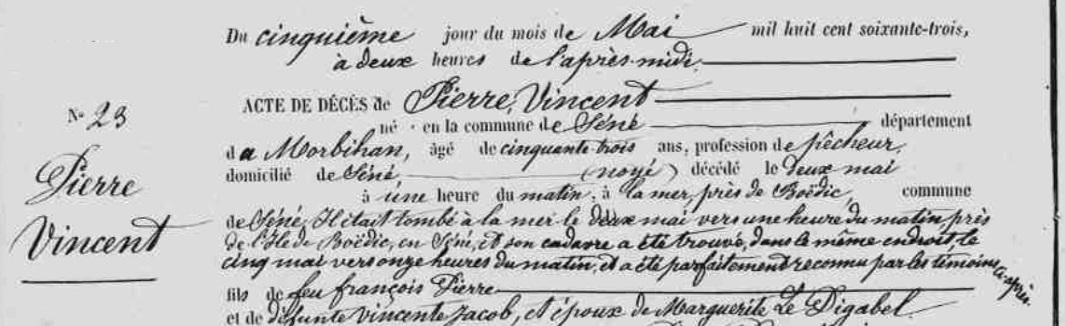 Du cinquième jour du mois de Mai mil huit cent soixante-trois,
à deux heures de l'après-midi.
N° 23
Pierre
Vincent
ACTE DE DÉCÈS de Pierre, Vincent
né en la commune de Séné département
du Morbihan, âgé de cinquante-trois ans, profession de pêcheur,
domicilié de Séné (noyé) décédé le deux mai
à une heure du matin, à la mer, près de Boëdic, commune
de Séné, Il était tombé à la mer le deux mai vers une heure du matin près
de l'Île de Boëdic, en Séné, et son cadavre a été trouvé, dans le même endroit, le
cinq mai vers onze heures du matin, et a été parfaitement reconnu par les témoins ci-après
fils de feu françois Pierre
et de défunte Vincente Jacob, et époux de Marguerite Le Digabel